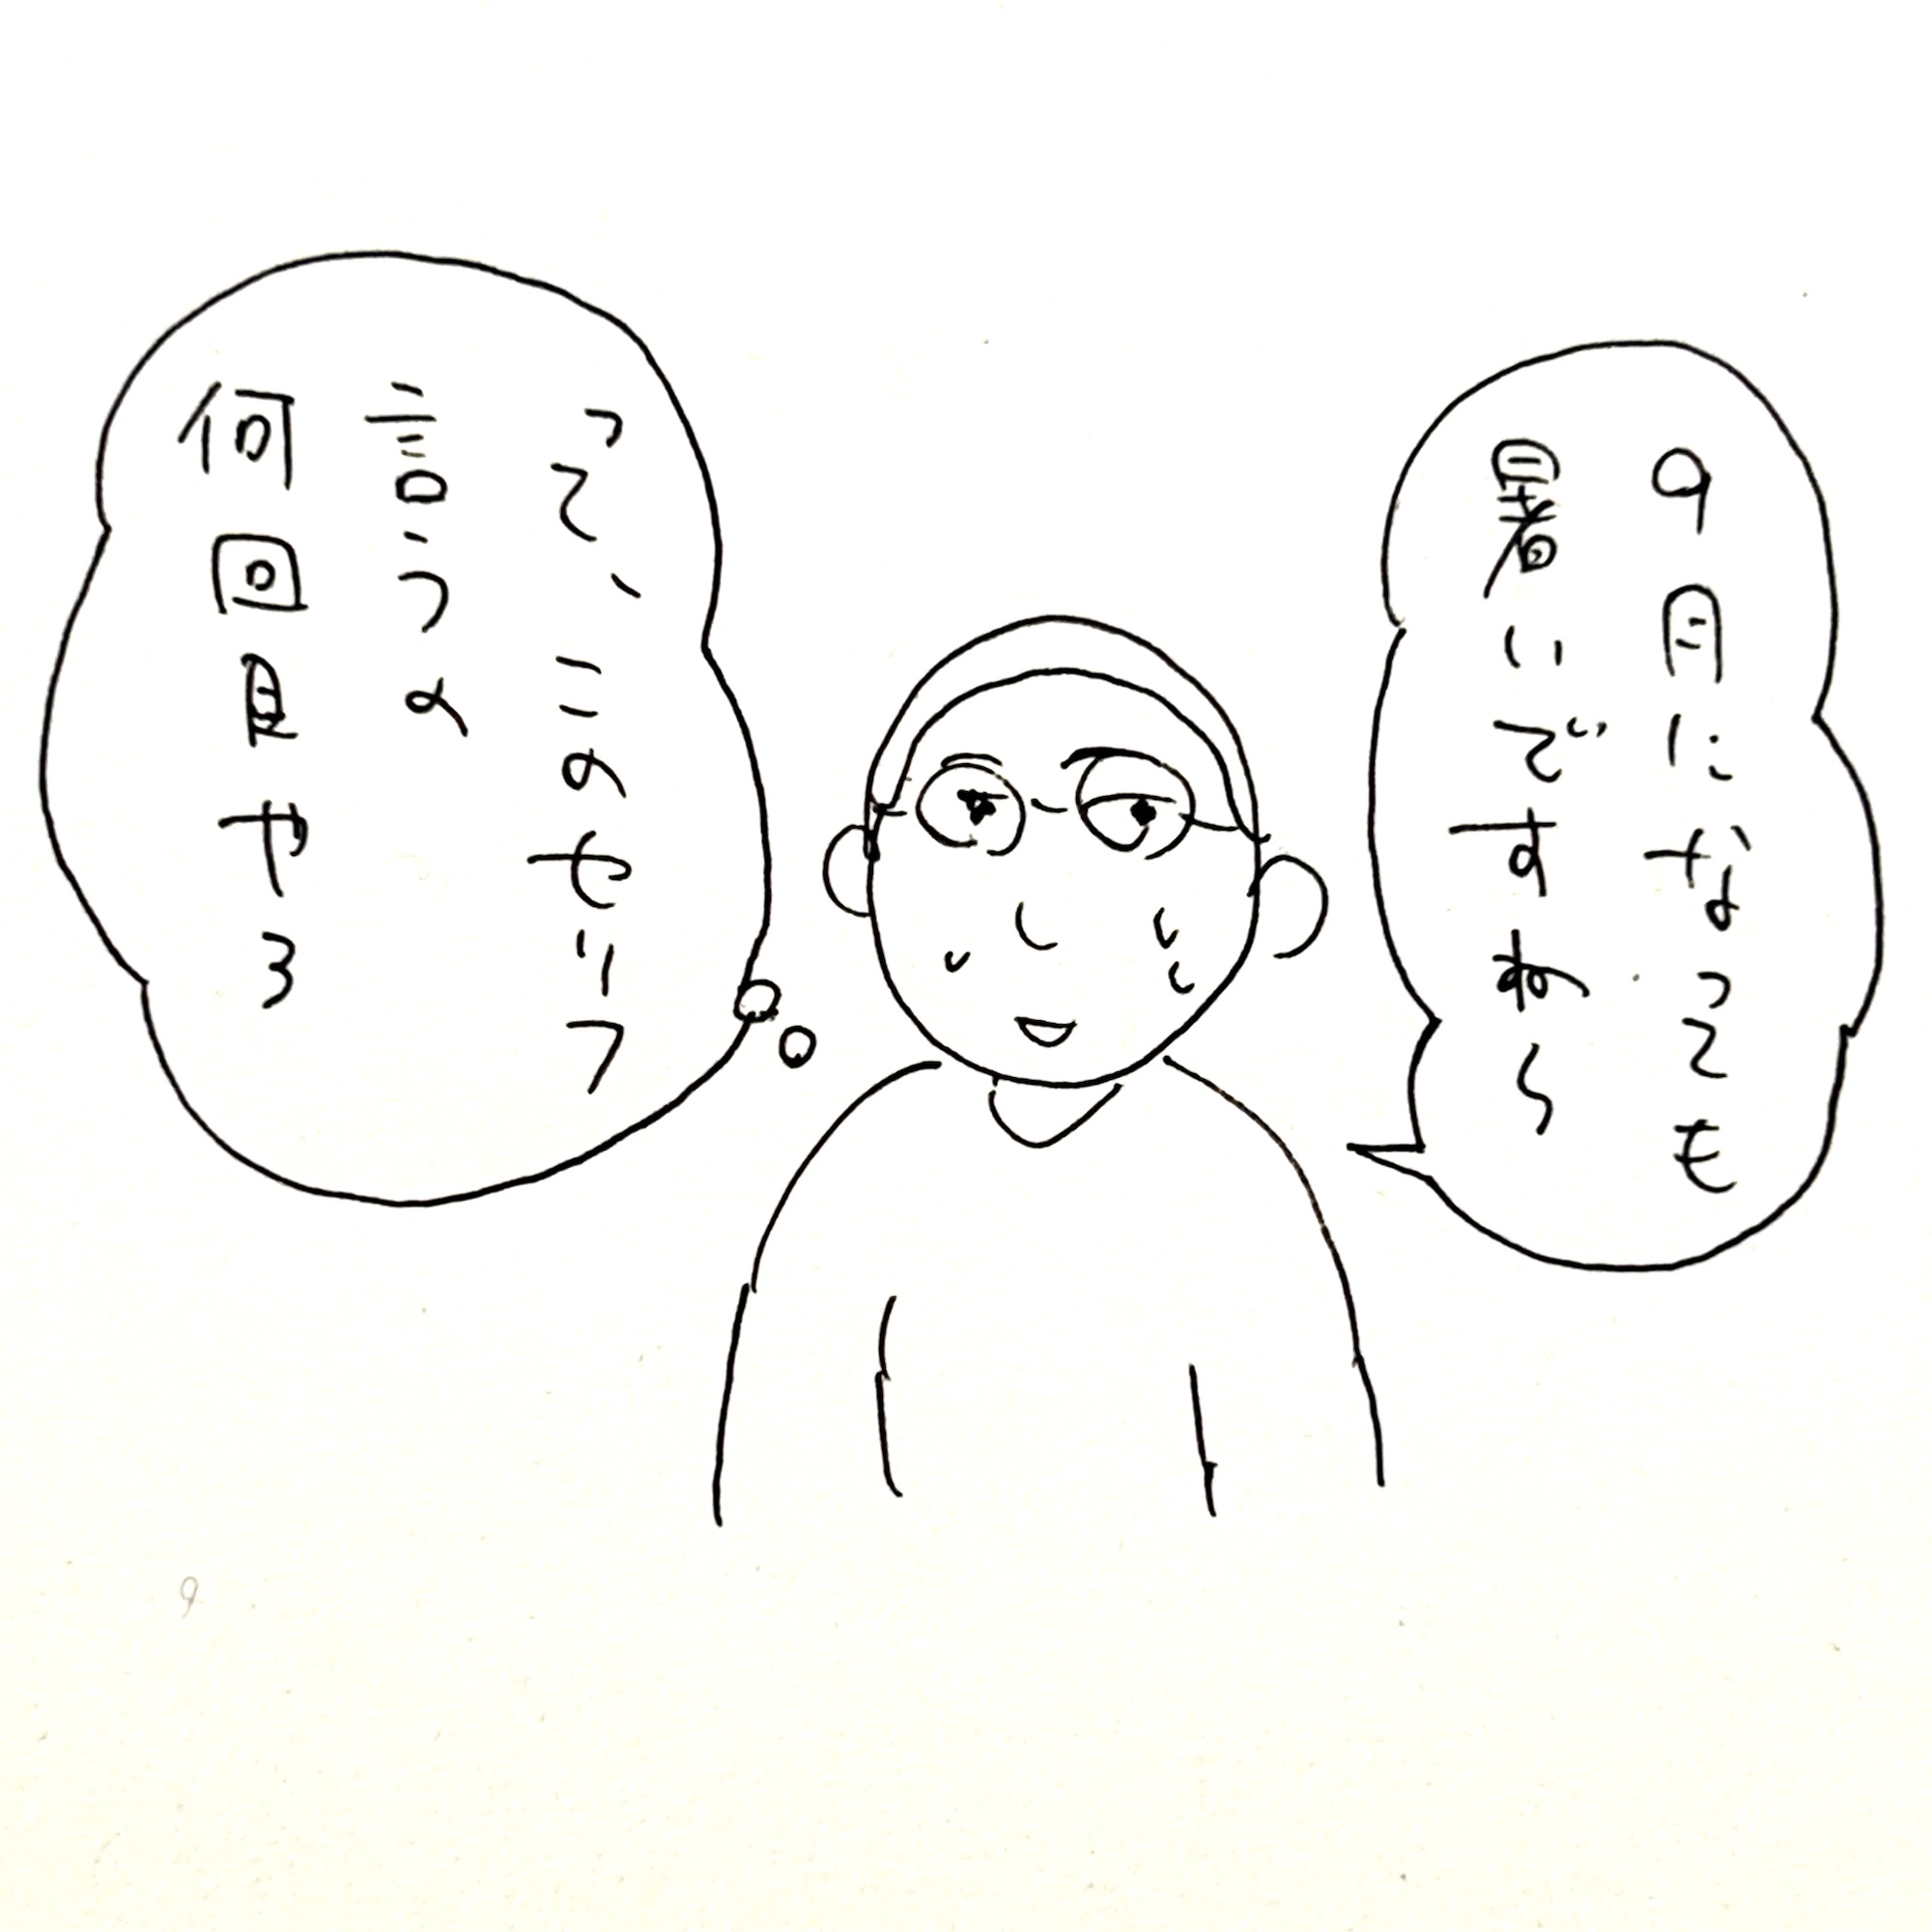 9月になっても
暑いですねぇ〜
って、このセリフ
言うの
何回目やろ